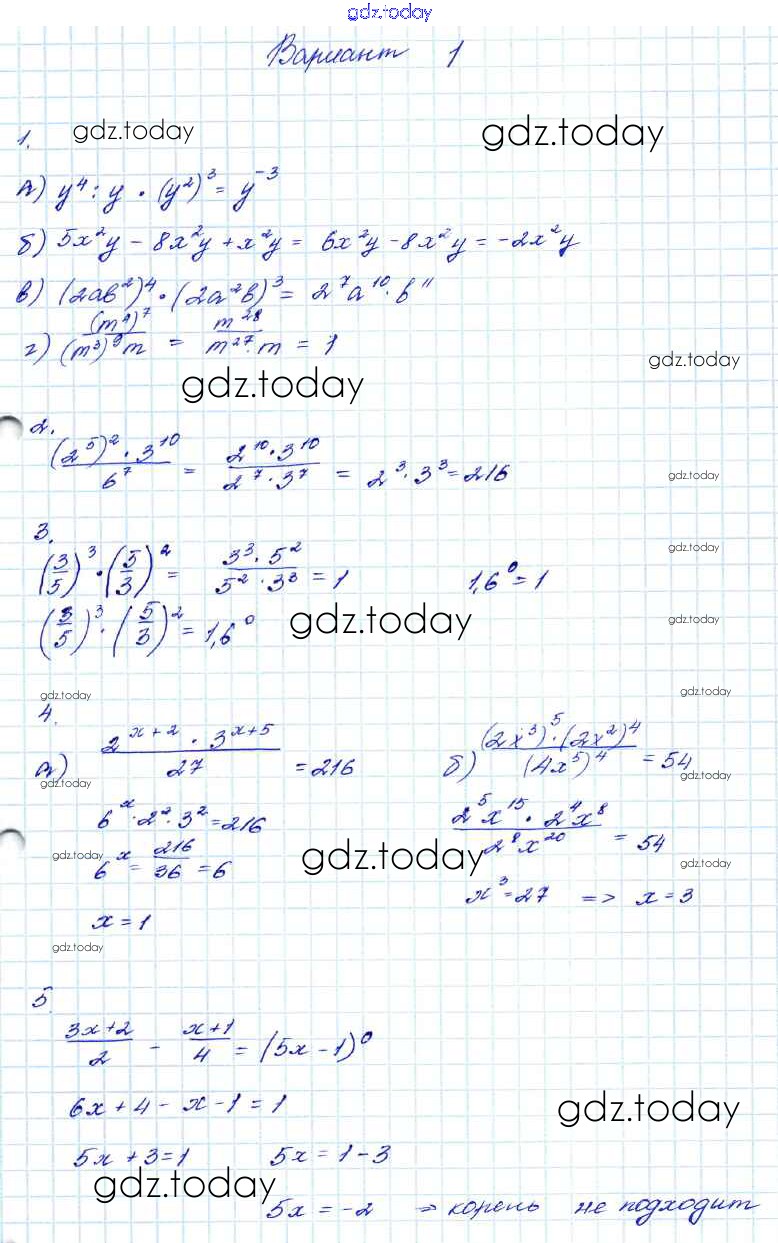 gdz.today
Вариант 1
1.
gdz.today gdz.today
а) y⁴ : y · (y²)³ = y⁻³
б) 5x²y - 8x²y + x²y = 6x²y - 8x²y = -2x²y
в) (2ab²)⁴ · (2a²b)³ = 2⁷a¹⁰ · b¹¹
г) (m⁴)⁷ / (m³)⁹m = m²⁸ / m²⁷ · m = 1
gdz.today
gdz.today
2.
(2⁵)² · 3¹⁰ / 6⁷ = 2¹⁰ · 3¹⁰ / 2⁷ · 3⁷ = 2³ · 3³ = 216
gdz.today
3.
gdz.today
(3/5)³ · (5/3)² = 3³ · 5² / 5² · 3³ = 1 1,6⁰ = 1
(3/5)³ · (5/3)² = 1,6⁰
gdz.today gdz.today
gdz.today gdz.today
4.
а) 2ˣ⁺² · 3ˣ⁺⁵ / 27 = 216
б) (2x³)⁵ · (2x²)⁴ / (4x⁵)⁴ = 54
gdz.today gdz.today
6ˣ · 2² · 3² = 216
2⁵x¹⁵ · 2⁴x⁸ / 2⁸x²⁰ = 54
gdz.today gdz.today gdz.today
6ˣ = 216 / 36 = 6
x³ = 27 => x = 3
x = 1
gdz.today
5.
3x+2 / 2 - x+1 / 4 = (5x - 1)⁰
6x + 4 - x - 1 = 1
gdz.today
5x + 3 = 1 5x = 1 - 3
gdz.today
5x = -2 ⇒ корень не подходит